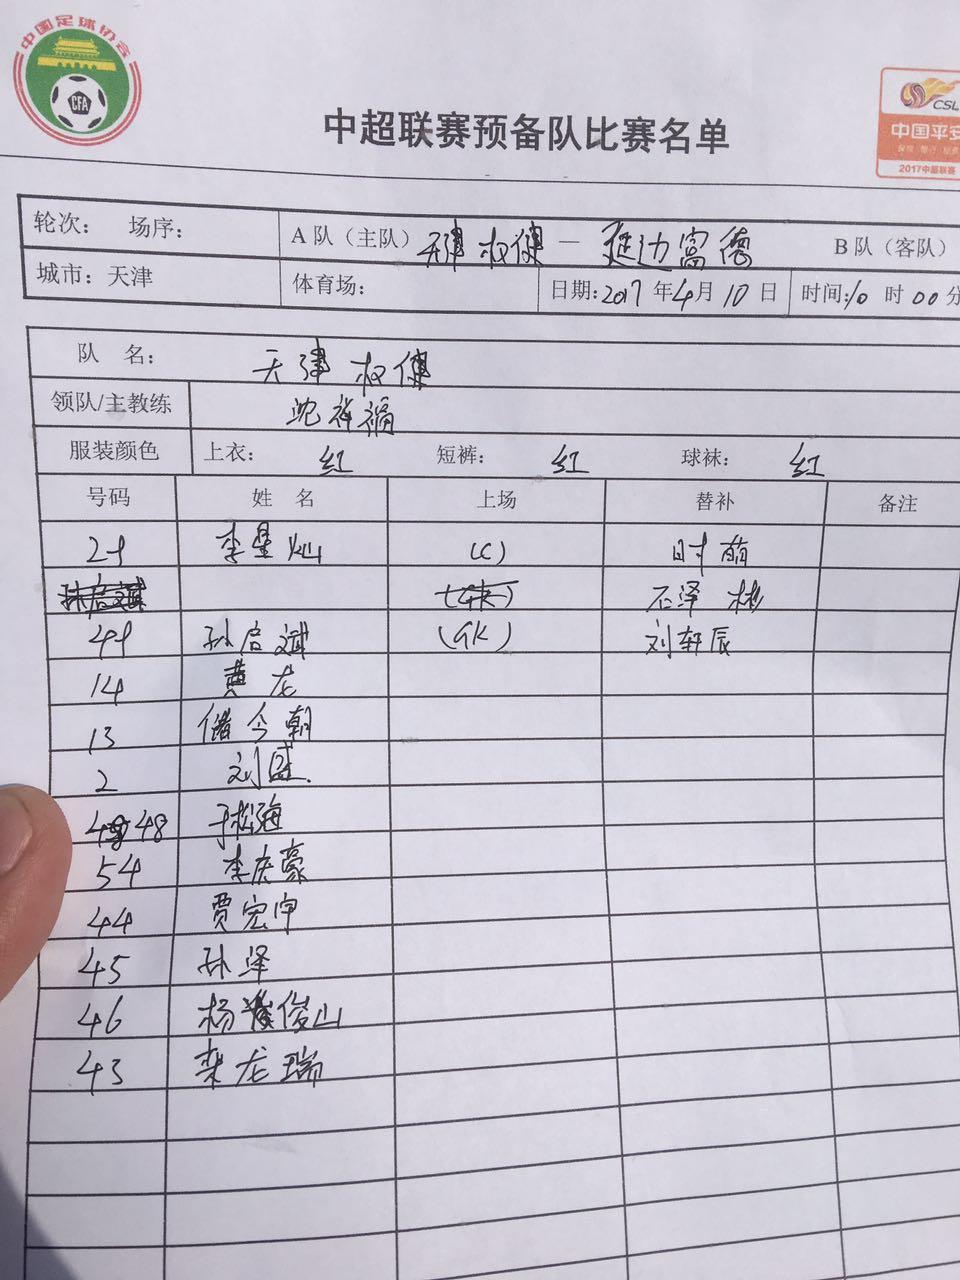 中国足球协会
CFA
CSL
中国平安
2017中超联赛
中超联赛预备队比赛名单
轮次： 场序： A队（主队）天津权健—延边富德 B队（客队）
城市：天津 体育场： 日期：2017年4月10日 时间：10时00分
队 名： 天津权健
领队/主教练 沈祥福
服装颜色 上衣： 红 短裤： 红 球袜： 红
号码 姓 名 上场 替补 备注
21 李星灿 (C) 时萌
孙启斌 (GK) 石泽彬
41 孙启斌 (GK) 刘轩辰
14 黄龙
13 储今朝
2 刘盛
48 于松海
54 李庆豪
44 贾宏宇
45 孙泽
46 杨俊山
43 栾龙瑞